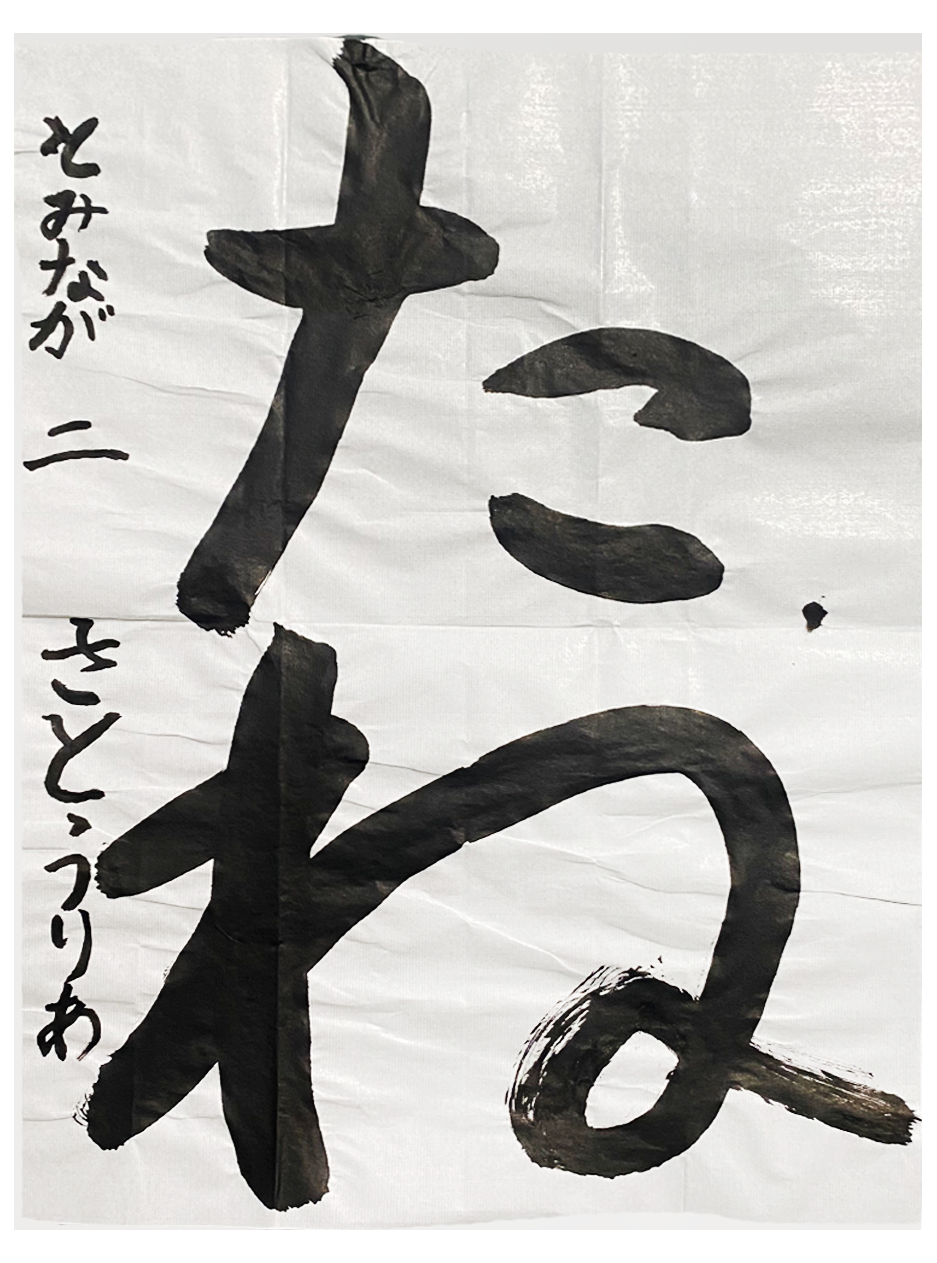 たね
とみなが 二 さとうりあ